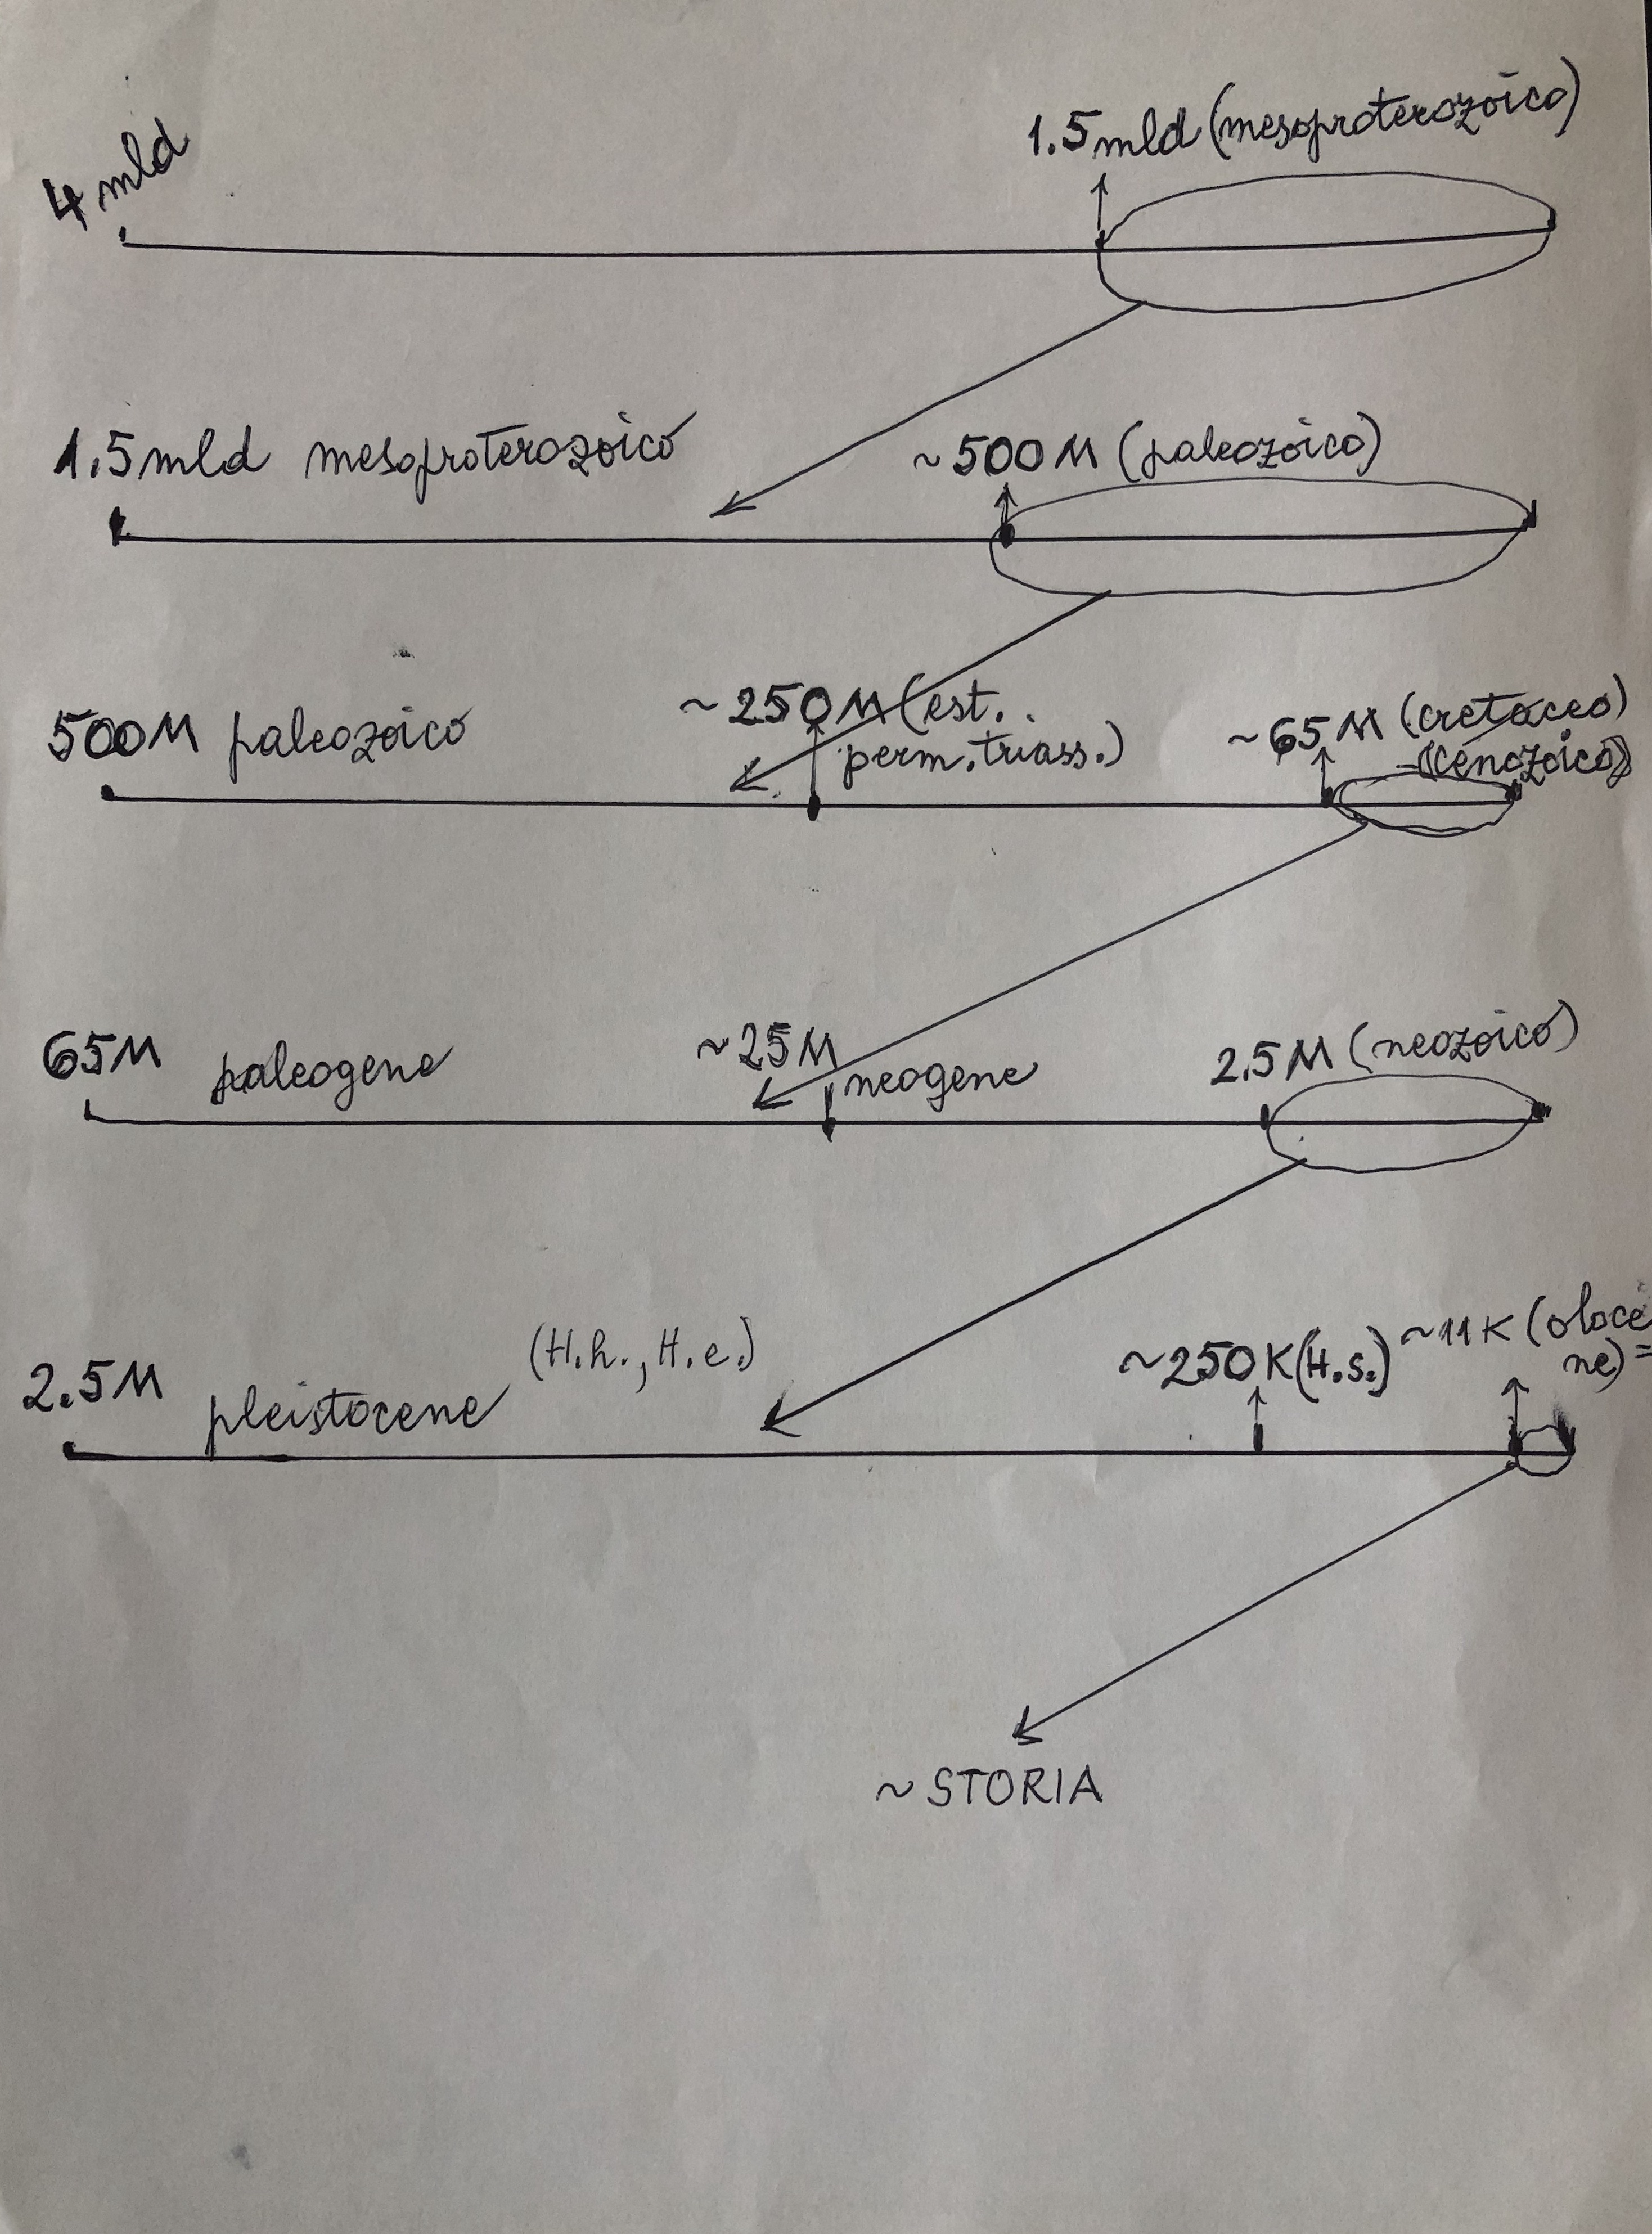 4 mld
1.5 mld (mesoproterozoico)
1.5 mld mesoproterozoico
~500 M (paleozoico)
500 M paleozoico
~250 M (est.
perm. triass.)
~65 M (cretaceo)
(cenozoico)
65 M paleogene
~25 M
neogene
2.5 M (neozoico)
2.5 M pleistocene
(H.h., H.e.)
~250 K (H.s.)
~11 K (oloce
ne)
~ STORIA